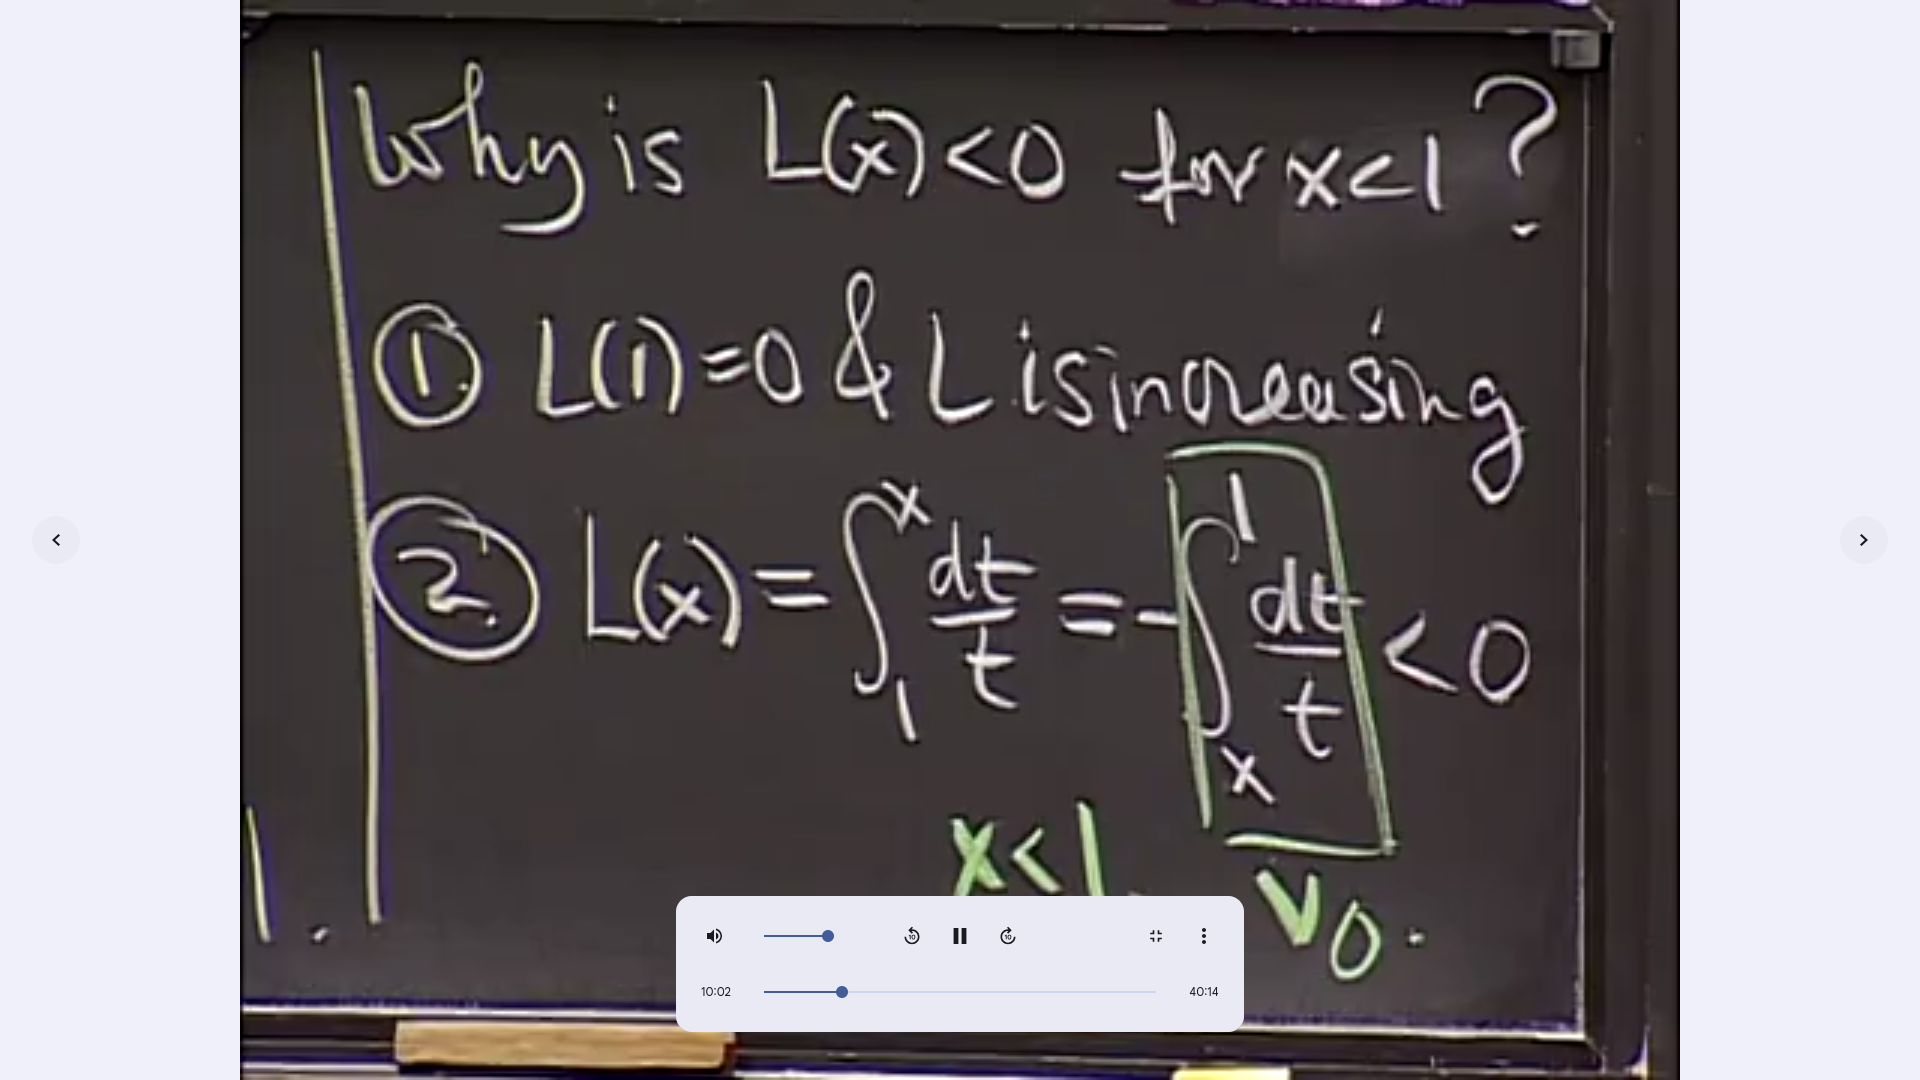 Why is L(x)<0 for x<1?
① L(1)=0 & L is increasing
② L(x) = ∫₁ˣ dt/t = -∫ₓ¹ dt/t < 0
x<1
V0.
1.
10:02
40:14